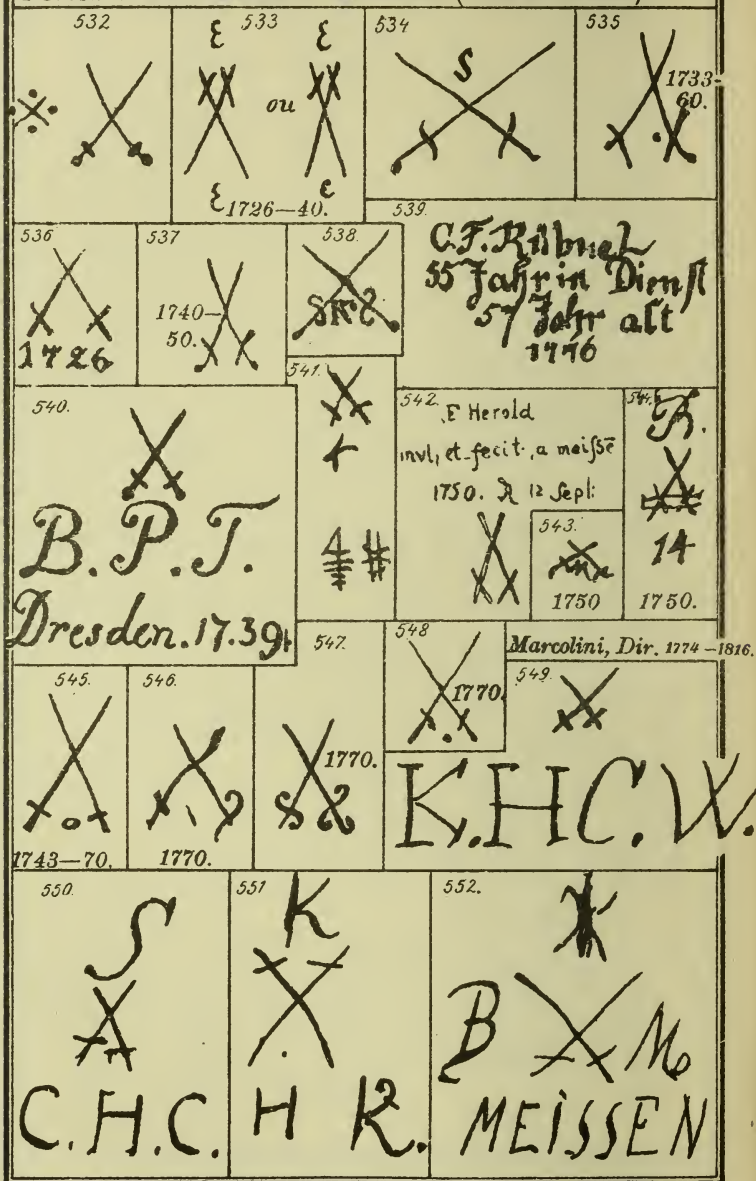 532
533
ε ε
ou
ε ε
1726—40.
534
S
535
1733-
60.
536
1726
537
1740—
50.
538.
SKS
539.
C.F.
55 Jahr in Dienst
57 Jahr alt
1776
540.
B.P.T.
Dresden.17.39.
541.
4
542.
E Herold
invt, et-fecit, a meissē
1750. R 12 Sept:
543.
1750
544.
R.
14
1750.
545.
1743—70.
546.
1770.
547.
1770.
548
1770.
Marcolini, Dir. 1774—1816.
549.
K.H.C.W.
550.
S
C.H.C.
551
K
H K.
552.
B M
MEISSEN